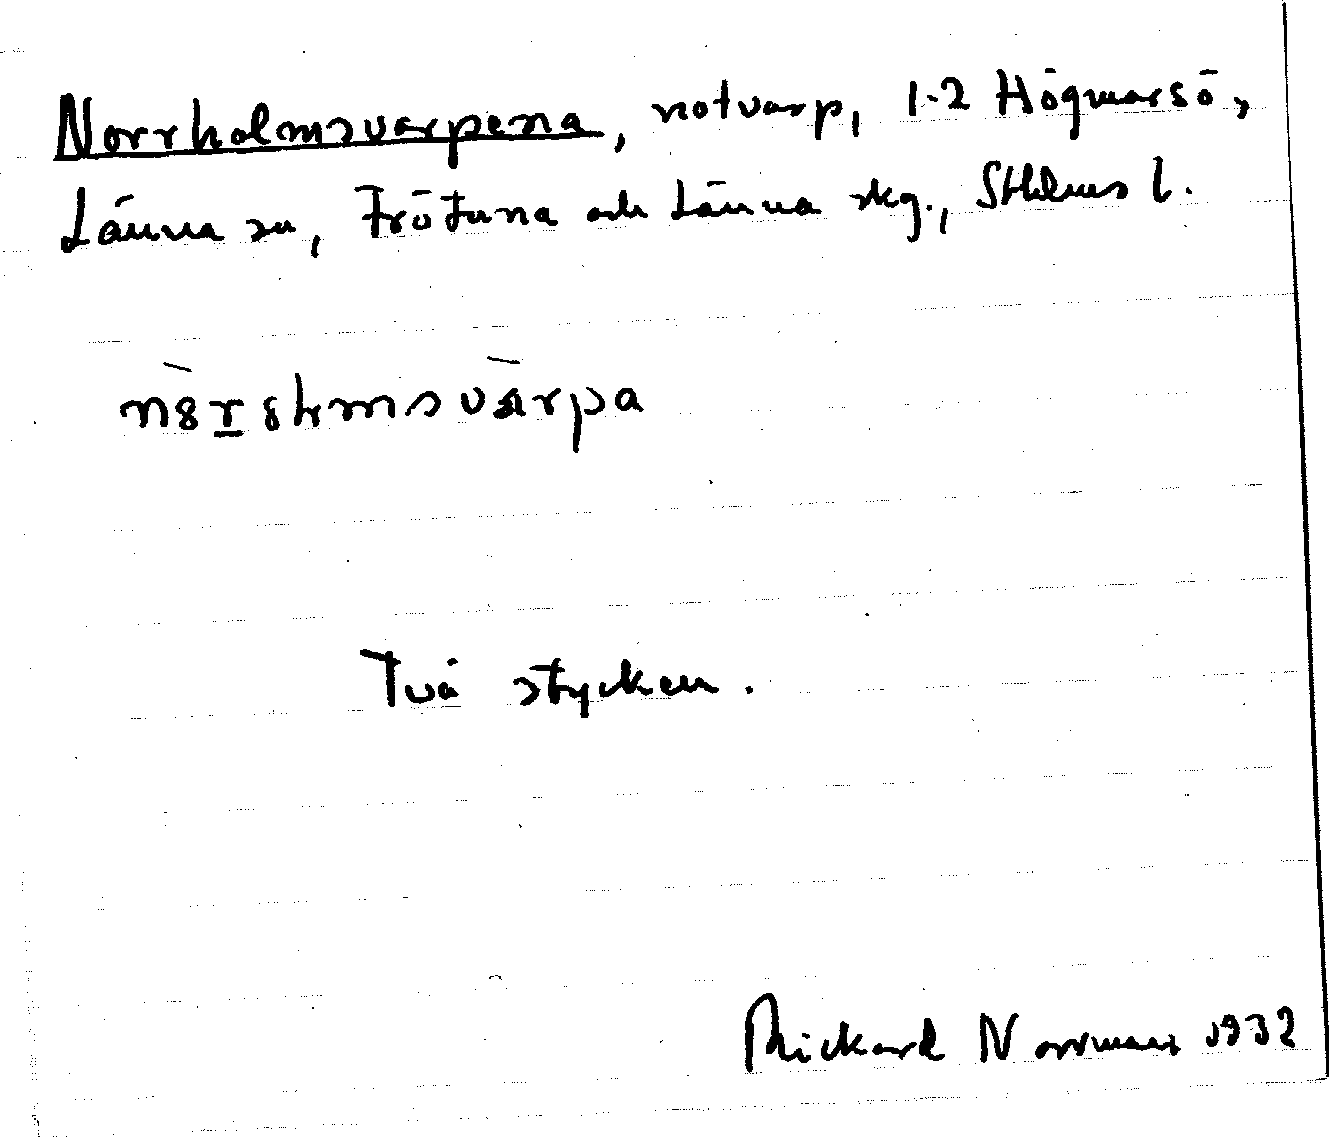 Norrholmsvarpena, notvarp, 1-2 Högmarsö,
Länna sn, Frötuna och Länna skg., Sthlms l.
Två stycken.
Rickard Norrman 1932